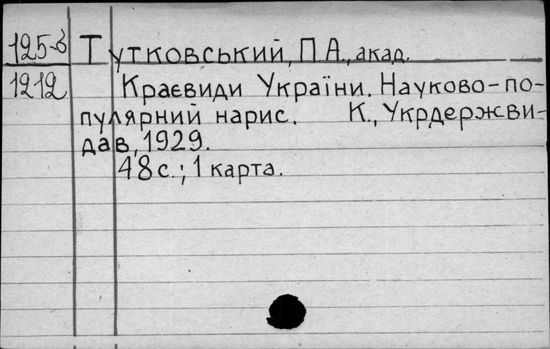 125-в Тутковський, П А., акад.
1212 Краєвиди України. Науково-по-
пулярний нарис. К., Укрдержви-
дав, 1929.
48 с.; 1 карта.